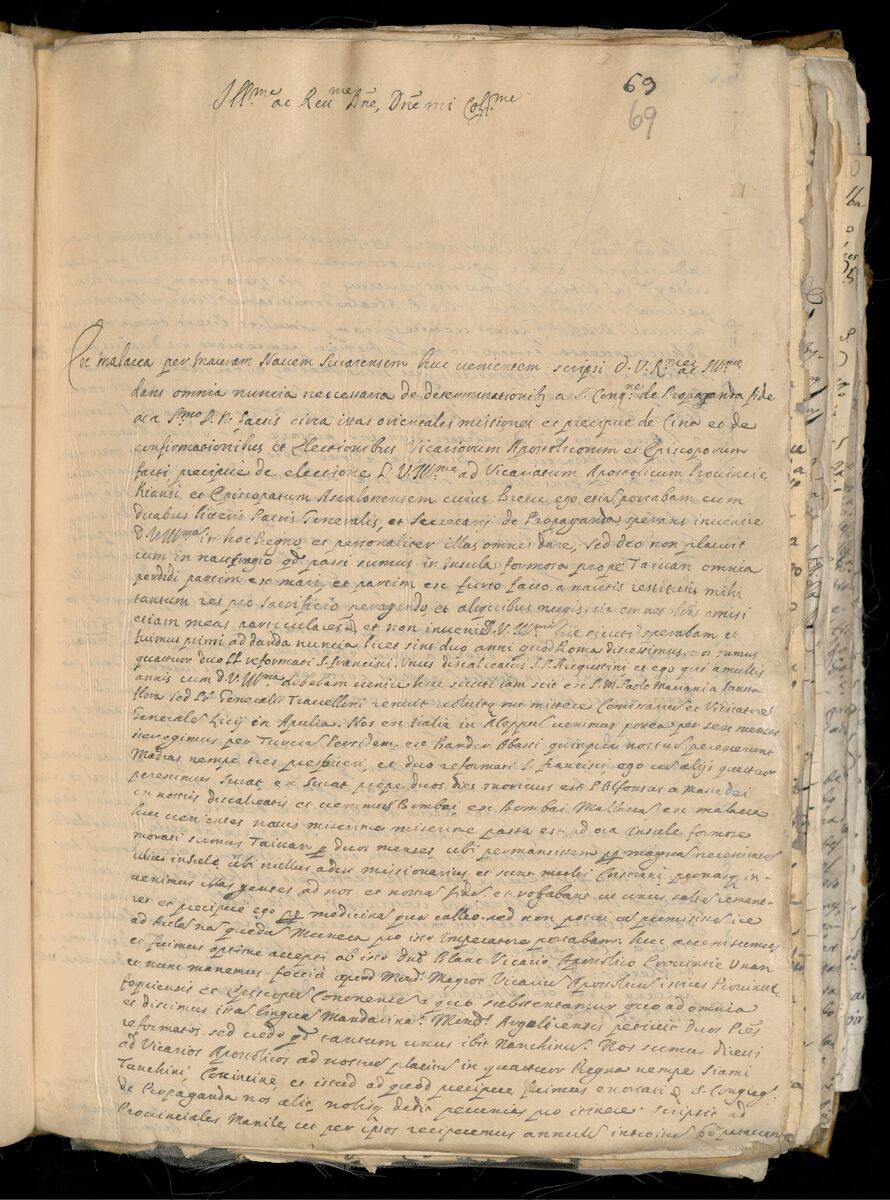 Ill.me ac Reu.me Dñe, Dñe mi Col.me
69
69
Ex malacca per Navem Suratensem huc venientem scripsi D. V. R.me ac Ill.me
dans omnia nuncia necessaria de determinationib9 a S. Congne de Propaganda fide
ac a S.mo D. N. factis circa istas orientales missiones et precipue de Cina et de
confirmationibus et Electionibus Vicariorum Apostolicorum et Episcoporum
facti precipue de electione D. V. Ill.me ad Vicariatum Apostolicum Provincie
Kiansi et Episcopatum Ascalonensem cuius Breve, ego etiã portabam cum
duabus literis Patris Generalis, et Secretarij de Propaganda sperans invenire
D. V. Ill.mam in hoc Regno et personaliter illas omnes dare, sed deo non placuit
cum in naufragio qd passi sumus in insula formosa prope Taiuan omnia
perdidi partim ex mari, et partim ex furto facto a nautis restitutis mihi
tantum res pro sacrificio peragendo et aliquibus nugis, sic omnes amisi
etiam meas particulares, et non inveni D. V. Ill.mam hic sicuti sperabam et
fuimus primi ad danda nuncia licet sint duo anni quod Roma discessimus, nos sumus
quattuor duo PP. reformati S. Francisci, Unus discalceatus S. P. Augustini et ego qui a multis
annis cum D. V. Ill.ma debebam venire huc sicuti iam scit ex P. M. Paolo Mariani a Sancta
flora sed P. Generalis Travelloni renuit me mittere Comissarius et Visitatores
Generales Licij in Apulea. Nos ex italia in Aleppum venimus postea per sex menses
iter egimus per Turcas Persidem ex Bander Abassi quinque nostrum pervenerunt
Madras nempe tres presbiteri, et duo reformati S. francisci, ego cum alijs quattuor
perveximus Surat, ex Surat prope duos dies mortuus est P. Alfonsus a mater dei
ex nostris discalceatis et venimus Bombai, ex Bombai Mallaca, ex malaca
huc venientes navis miserime miserime passa est ad ora insule formose
morati sumus Taiuan p duos menses, ubi permansissem pp magnas necessitates
illius insule, ubi nullus adest missionarius et sunt multi Cristiani, in-
venimus illas gentes ad nos et nostra fide et rogabant ut unus saltem remane-
ret et precipue ego pp medicina qua calleo. sed non potui
ad Aulam quedam Munera pro isto imperatore portabam. huc advenissemus
et fuimus optime accepti ab isto Dno Blanc Vicario Apostolico Provincie Unan
et nunc manemus foccii apud Mond. Megrot Vicarius Apostolicus istius Provincie
foquiensis et Episcopus Cononensis a quo substentamur quo ad omnia
et discimus ista lingua Mandarina. Mond. Argoliensis petiit duos PP.es
reformatos, sed credo qd tantum unus ibit Nanchinum. Nos sumus directi
ad Vicarios Apostolicos ad nostrum placitum in quattuor Regna nempe Siami
Tunchini, Cocincine, et istud ad quod precipue fuimus a S. Congreg.
de Propaganda nos alit, nobisq dedit pecunias pro itinere. scripsit ad
Provinciales Manile, ut per ipsos reciperemus annuos introitus 60